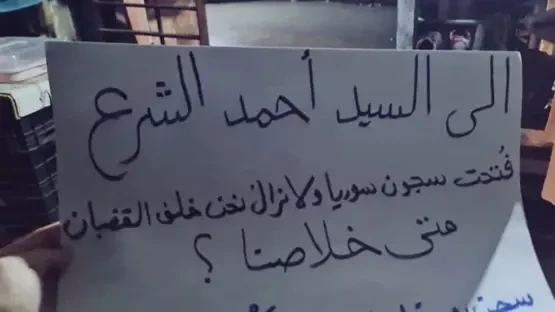 الى السيد أحمد الشرع
فُتحت سجون سوريا ولا نزال نحن خلف القضبان
متى خلاصنا ؟
سجن